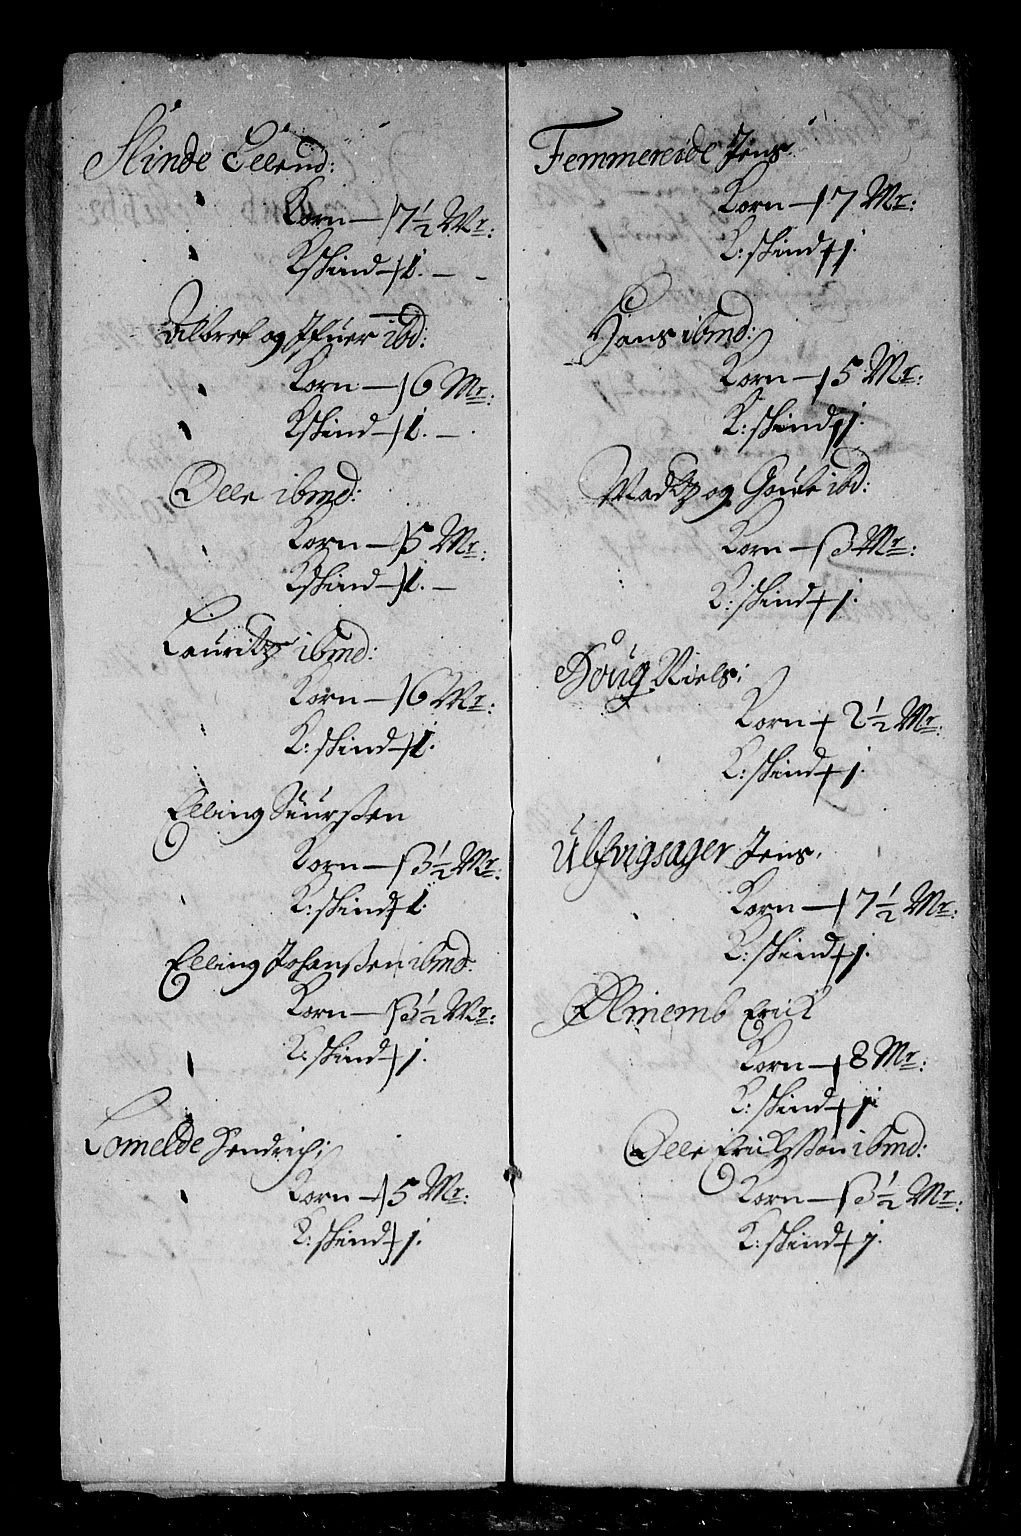 Slinde Ellend:
Korn — 7½ Mr:
Kskind — 1. —
Albret og Ifuer ibd:
Korn — 6 Mr:
Kskind — 1. —
Olle ibmd:
Korn — 5 Mr:
Kskind — 1. —
Lauritz ibmd:
Korn — 6 Mr:
K: skind — 1.
Elling Siurßen
Korn — 3½ Mr:
K: skind 1.
Elling Johanßen ibmd.
Korn — 3½ Mr:
K: skind j.
Lomelde Hendrich:
Korn — 5 Mr:
K: skind j.
Femmereide Jens.
Korn — 7 Mr:
K: skind j.
Hans ibmd:
Korn — 5 Mr:
K: skind j.
Madtz og Goute ibd:
Korn — 3 Mr:
K: skind j.
Houg Niels:
Korn 2½ Mr:
K: skind j.
Ulfvigsager Jens.
Korn — 7½ Mr:
K: skind j.
Ølmemb Erick
Korn — 8 Mr:
K: skind j.
Olle Erickßøn ibmd:
Korn — 3½ Mr:
K: skind j.